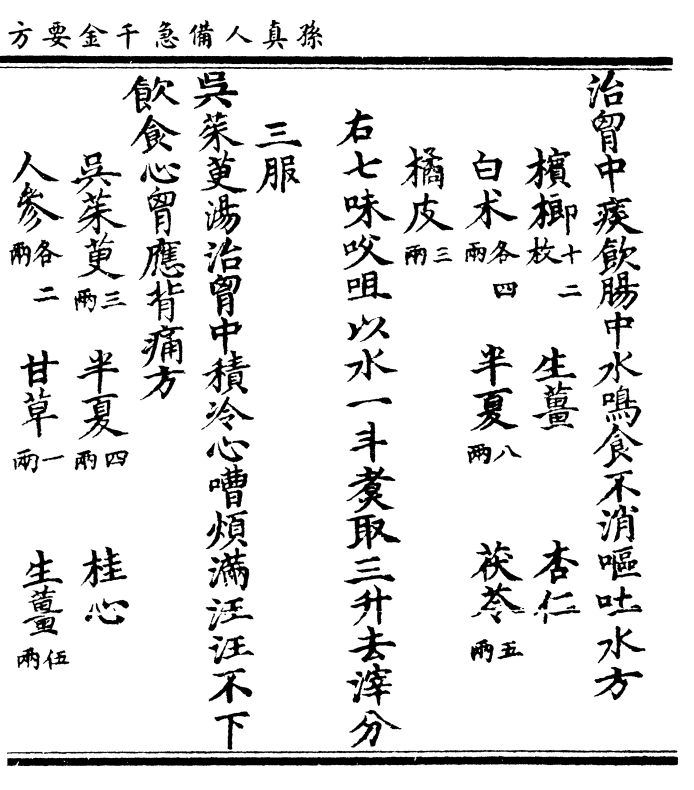 孫真人備急千金要方
治胷中痰飲腸中水鳴食不消嘔吐水方
檳榔十二枚 生薑 杏仁
白术各四兩 半夏八兩 茯苓五兩
橘皮三兩
右七味㕮咀以水一斗煑取三升去滓分
三服
吳茱萸湯治胷中積冷心嘈煩滿汪汪不下
飲食心胷應背痛方
吳茱萸三兩 半夏四兩 桂心
人參各二兩 甘草一兩 生薑伍兩